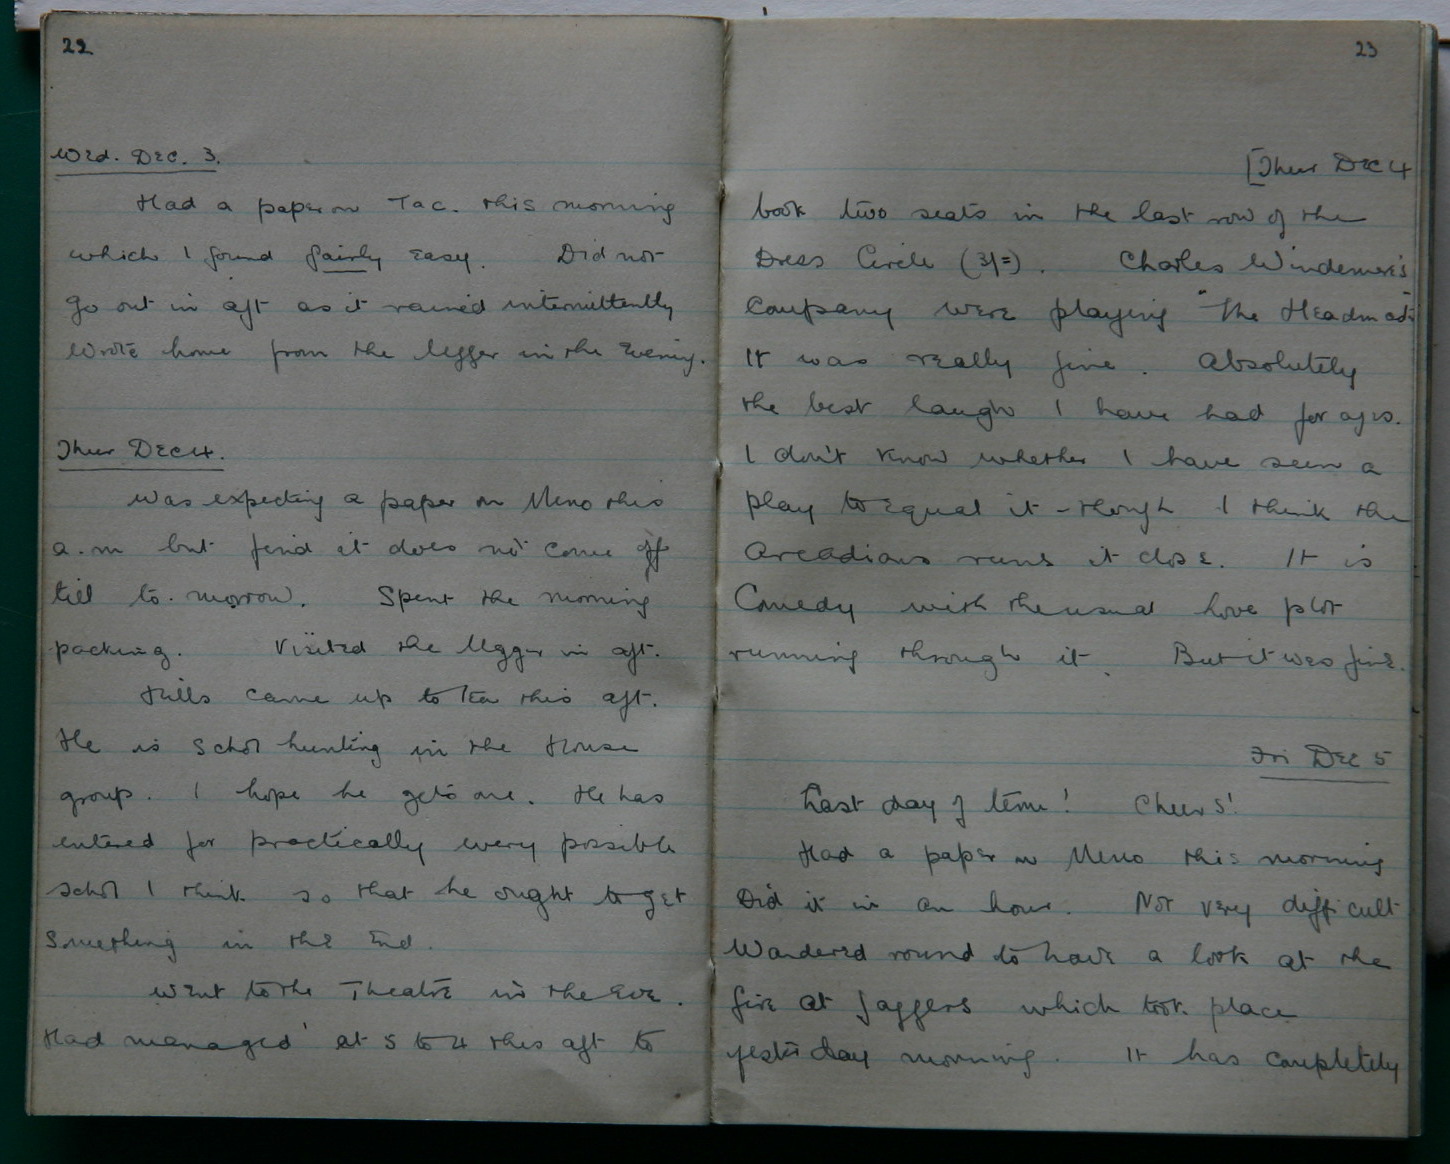 22
Wed. Dec. 3.
Had a paper on Tac. this morning
which I found fairly easy. Did not
go out in aft as it rained intermittently
Wrote home from the Ugger in the evening.
Thur Dec 4.
Was expecting a paper on Meno this
a.m but find it does not come off
till to-morrow. Spent the morning
packing. Visited the Ugger in aft.
Hills came up to tea this aft.
He is schol hunting in the House
group. I hope he gets one. He has
entered for practically every possible
schol I think so that he ought to get
something in the end.
Went to the Theatre in the eve.
Had managed at 5 to 4 this aft to
23
[Thur Dec 4
book two seats in the last row of the
Dress Circle (3/=). Charles Windemere's
Company were playing "The Headmast
It was really fine. Absolutely
the best laugh I have had for ages.
I don't know whether I have seen a
play to equal it - though I think the
Arcadians runs it close. It is
Comedy with the usual love plot
running through it. But it was fine.
Fri Dec 5
Last day of term! Cheers!
Had a paper on Meno this morning
Did it in an hour. Not very difficult
Wandered round to have a look at the
fire at Jaggers which took place
yesterday morning. It has completely